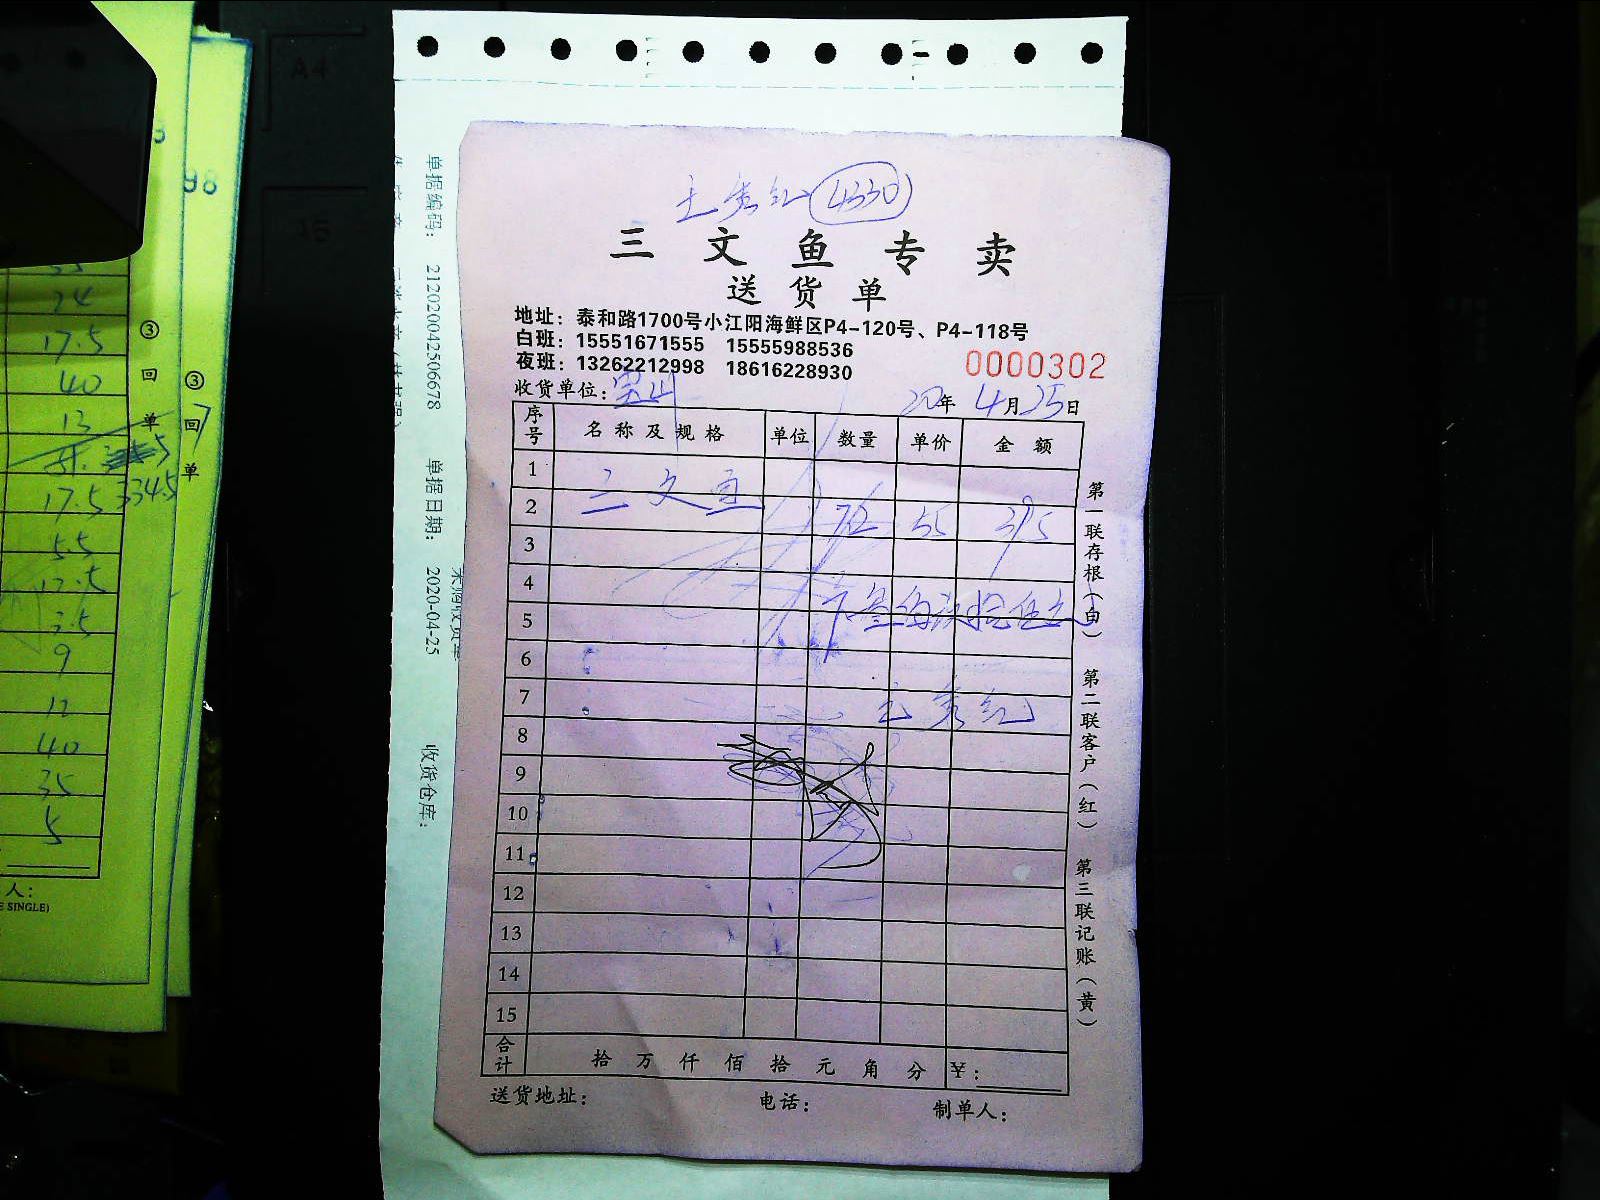 王秀红 4330
三文鱼专卖
送货单
地址：泰和路1700号小江阳海鲜区P4-120号、P4-118号
白班：15551671555 15555988536
夜班：13262212998 18616228930
0000302
收货单位：宝山
20年4月25日
序号 名称及规格 单位 数量 单价 金额
1
2 三文鱼 55
3
4
5
6
7 王秀红
8
9
10
11
12
13
14
15
合计 拾万仟佰拾元角分 ¥：
送货地址： 电话： 制单人：
第一联存根（白） 第二联客户（红） 第三联记账（黄）
单据编码： 212020042506678 单据日期： 2020-04-25 收货仓库：
采购收货单
98
③回单
③回单
24
17.5
40
13
17.5 334.5
5.5
17.5
3.5
9
12
40
35
5
人：
E SINGLE)
A4